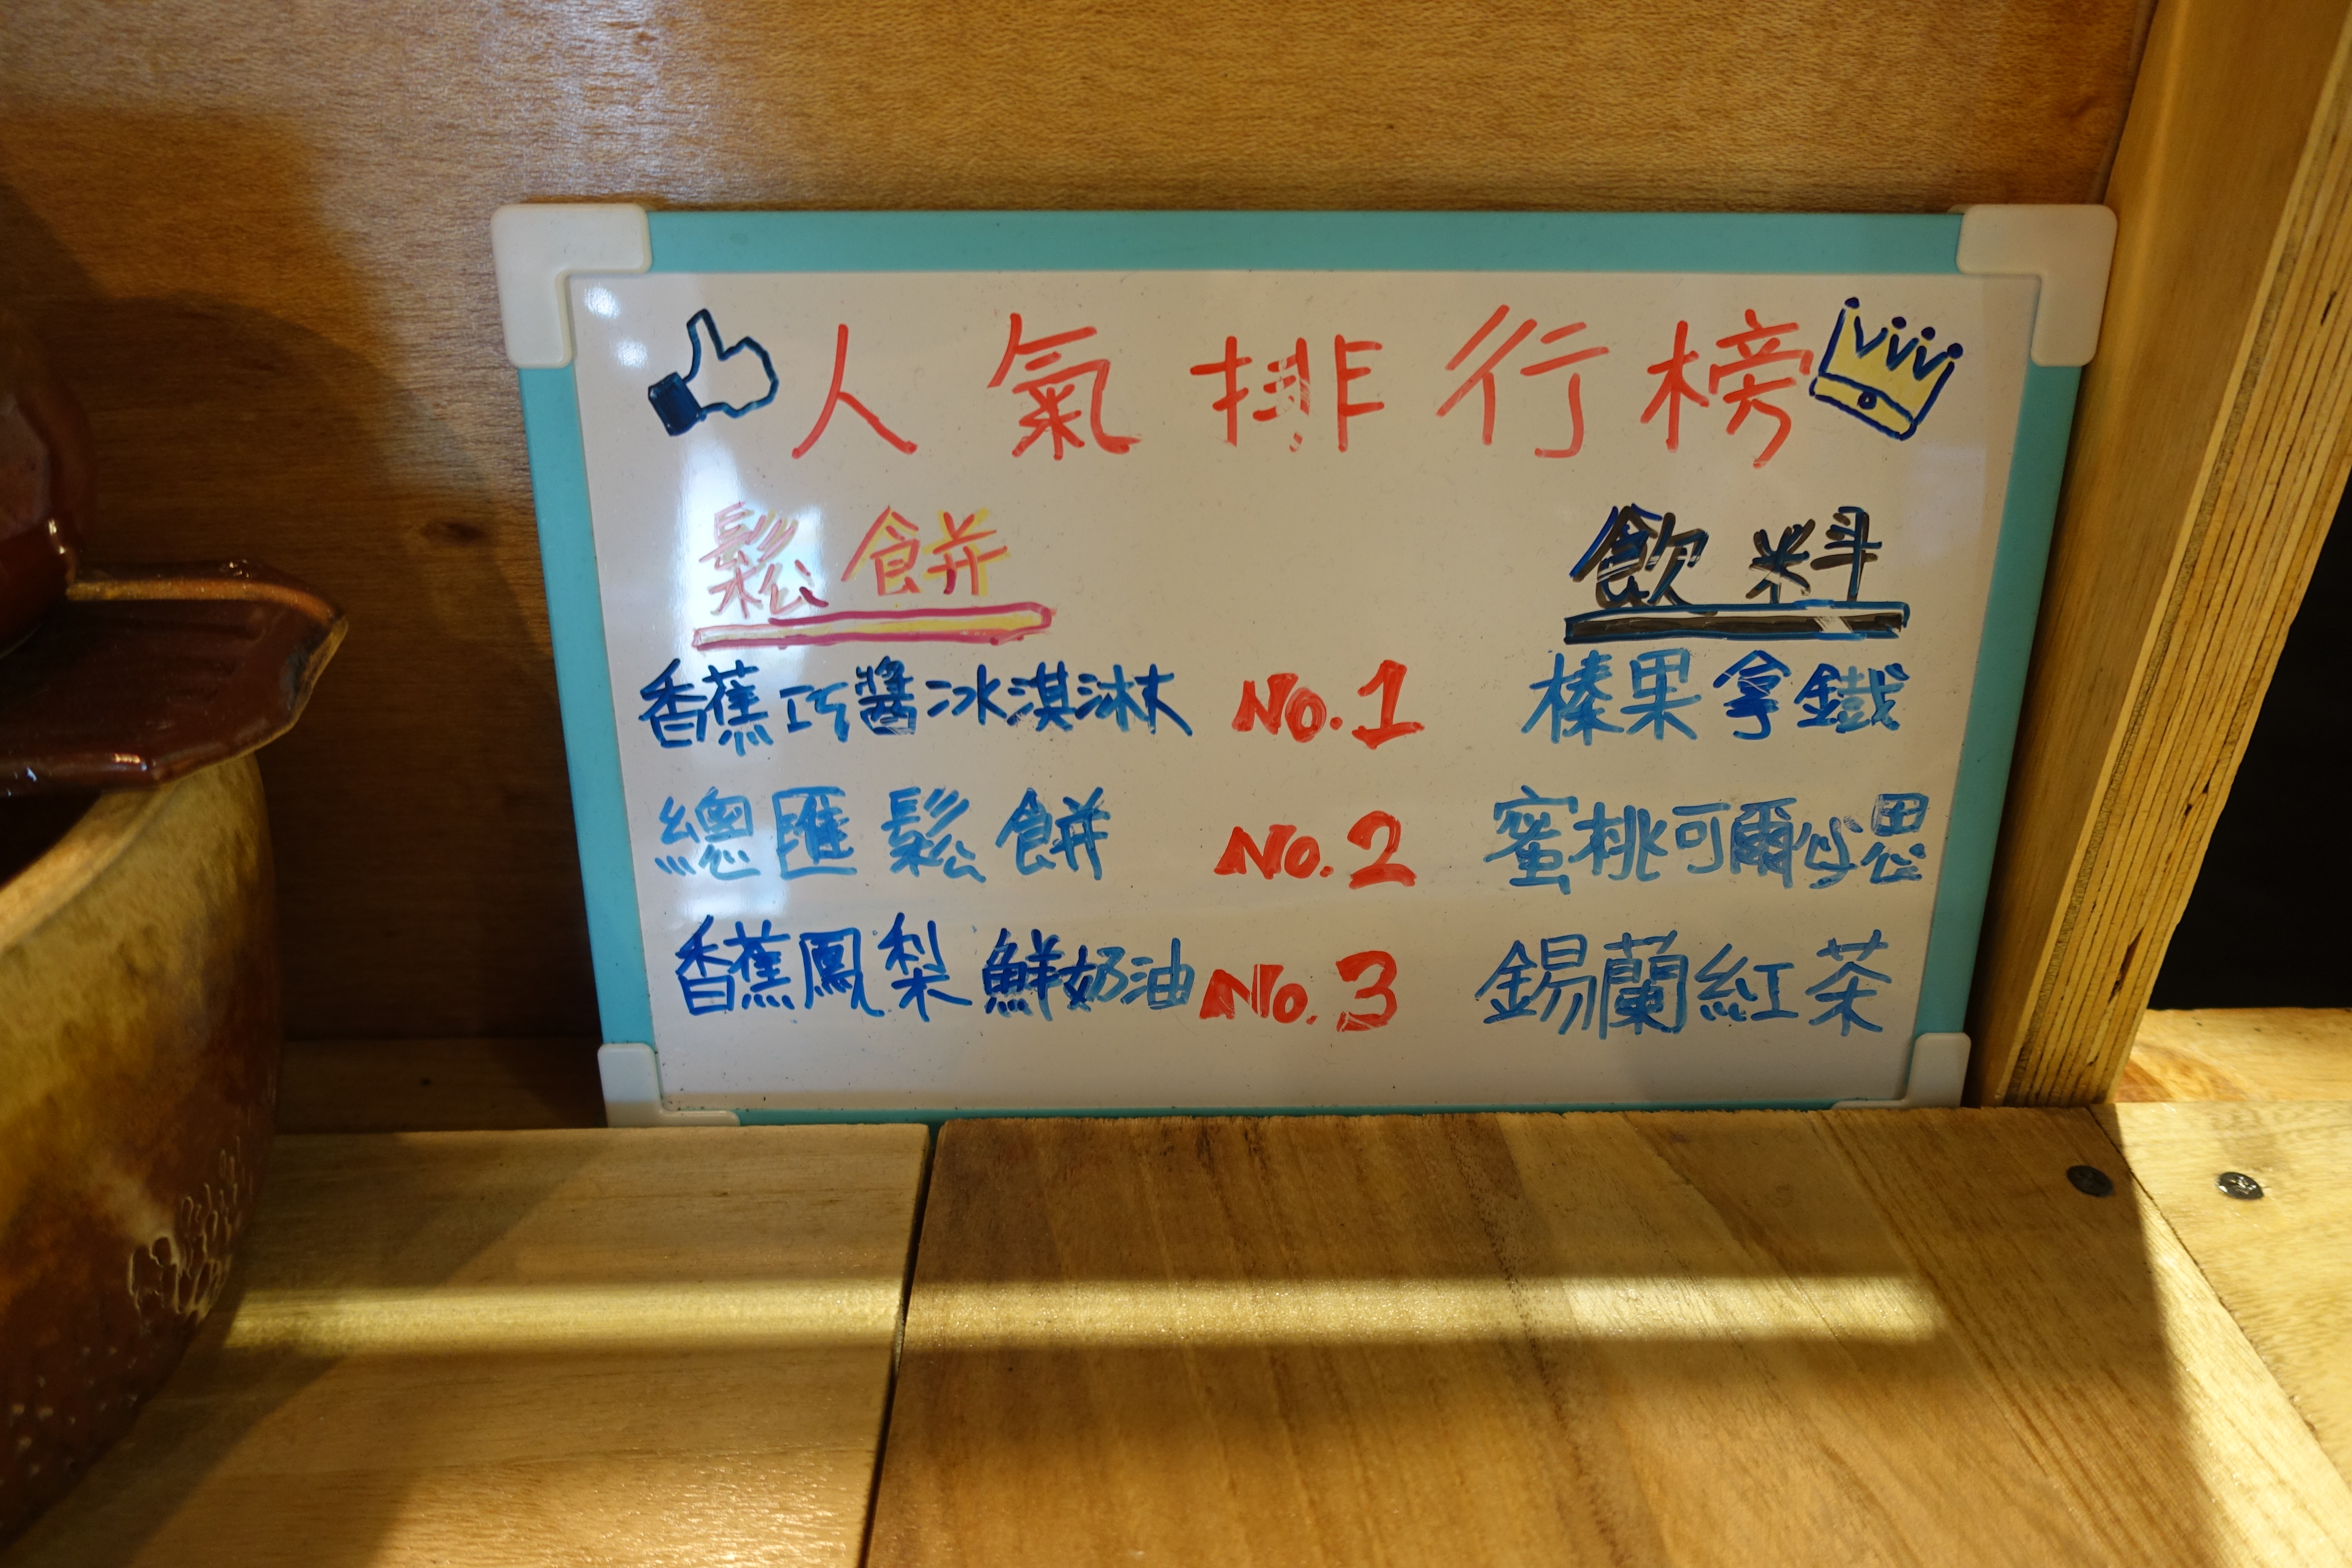 人氣排行榜
鬆餅 飲料
香蕉巧醬冰淇淋 No.1 榛果拿鐵
總匯鬆餅 No.2 蜜桃可爾必思
香蕉鳳梨鮮奶油 No.3 錫蘭紅茶